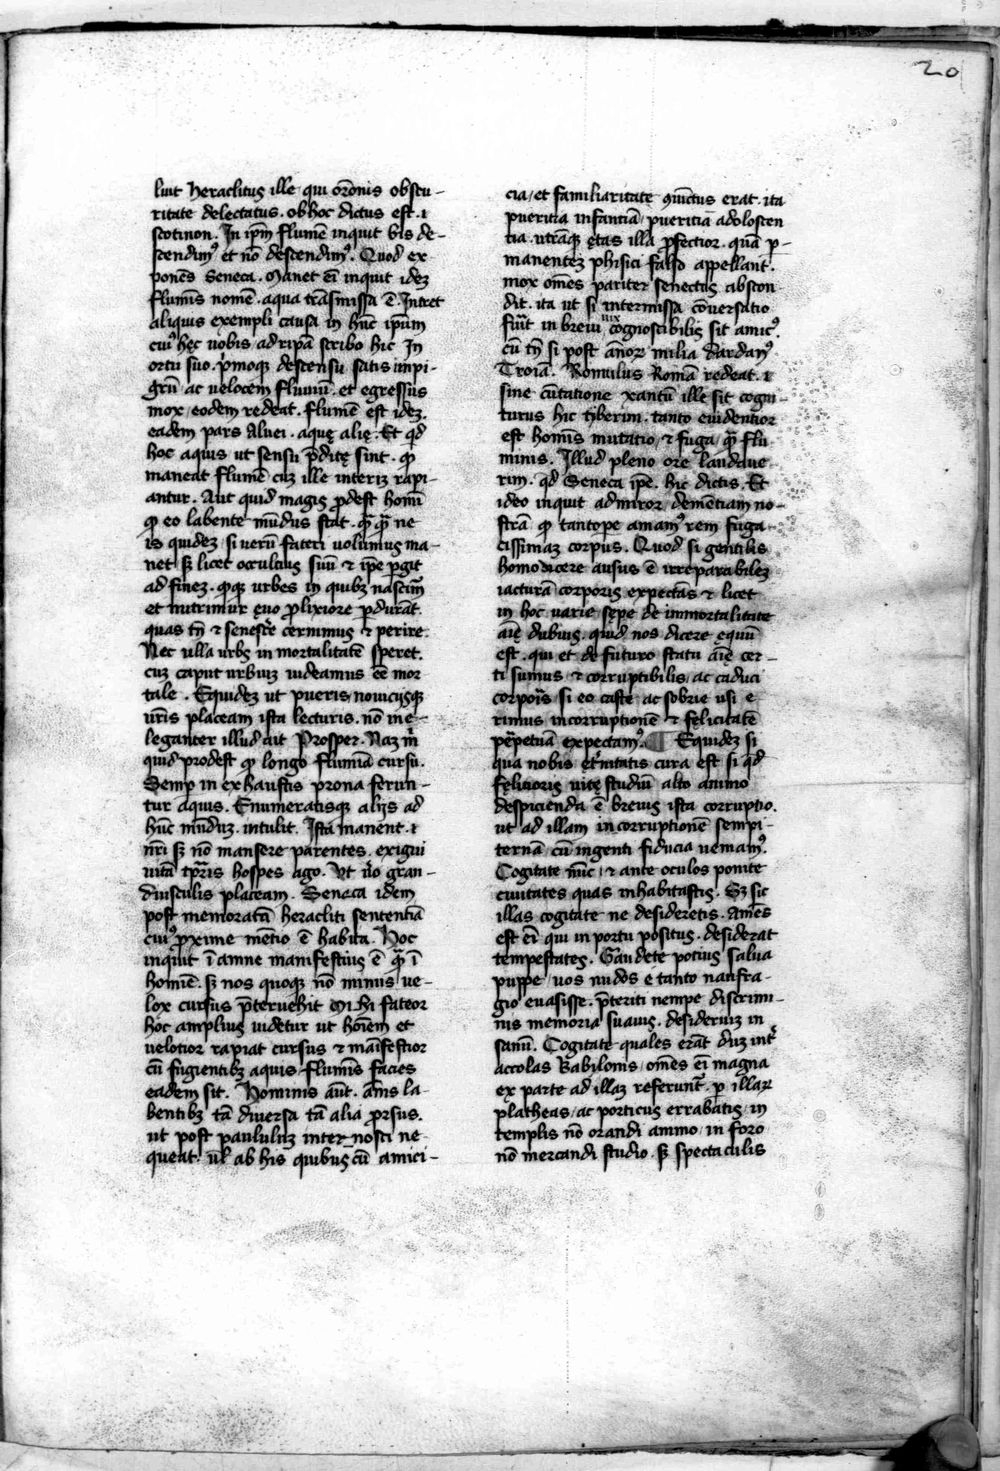 20
luit heraclitus ille qui orōnis obscu-
ritate delectatus. ob hoc dictus est. ı
scotinon. In ip̄m flumē inquit bis de-
scendimꝰ et nō descendimꝰ. Quod ex-
ponēs Seneca. Manet eī inquit idez
flumīs nomē. aqua trāsmissa ē. Intret
aliquis exempli causa in hūc ipsum
cuiꝰ hęc uobis ad ripā scribo hic In
ortu suo. p̍moqꝫ descensu satis impi-
grū ac uelocem fluuiū. et egressus
mox eodem redeat. flumē est idez.
eadem pars aluei. aquę alię. Et qd̄
hoc aquis ut sensu p̄ditę sint. ꝙ
maneat flumē cuz ille interiꝫ rapi-
antur. Aut quid magis ꝓdest homī
ꝙ eo labente mūdus stat. qꝫ qꝫ ne
is quidez si uerū fateri uolumus ma-
net sꝫ licet occultius suū ⁊ ip̄e ꝑgit
ad finez. ꝙqꝫ urbes in quibꝫ nascimꝰ
et nutrimur ęuo ꝓlixiore ꝑdurāt.
quas tn̄ ⁊ senescē cernimus ⁊ perire.
Nec ulla urbs in mortalitatē speret.
cuz caput urbiuz uideamus eē mor
tale. Equidez ut pueris nouicijsqꝫ
ur̄is placeam ista lecturis. nō ine-
leganter illud ait Prosper. Naz m̍
quid prodest ꝙ longo flumīa cursu.
Semꝑ in exhaustis prona ferun-
tur aquis. Enumeratisqꝫ alijs ad
hūc mūduz. intulit. Ista manent. ı
nr̄i sꝫ nō mansere parentes. exigui
uitā tꝑ̄ris hospes ago. Ut u̍o gran-
diusculis placeam. Seneca idem
post memoratā heracliti sententiā
cuiꝰ ꝓxime mētio ē habita. Hoc
inquit ī amne manifestius ē qꝫ ī
homīe. sꝫ nos quoqꝫ nō minus ue-
lox cursus p̄teruehit Mihi fateor
hoc amplius uidetur ut hoīem et
uelotior rapiat cursus ⁊ māifestior
cū fugientibꝫ aquis flumīs facies
eadem sit. Hominis aūt. āms la-
bentibꝫ tā diuersa tā alia ꝓrsus.
ut post paululuꝫ inter nosci ne-
queat. ul̄ ab his quibus cū amici-
cia et familiaritate quīctus erat. ita
pueritia infantiā pueritiā adoloscen
cia. utrāqꝫ ętas illa ꝓfectior. quā ꝑ-
manentez phisici falso appellant.
mox omēs pariter senectus abscon
dit. ita ut si intermissa cōuersatio
fūit in breui uix cognoscibilis sit amicꝰ.
cū tn̄ si post ānoꝝ milia dardanꝰ
Troiā. Romulus Romā redeat. ı
sine cūtatione xantū ille sit cogni-
turus hic tyberim. tanto euidentior
est homīs mutatio ⁊ fuga qꝫ flu
minis. Illud pleno ore laudaue-
rim. qd̄ Seneca ip̄e. hic dictis. Et
ideo inquit admiror demētiam no-
strā ꝙ tantoꝑe amamꝰ rem fuga-
cissimaz corpus. Quod si gentilis
homo dicere ausus ē irreparabilez
iacturā corporis expectās ⁊ licet
in hoc uarie sępe de immortalitate
aīę dubius. quid nos dicere ęquū
est. qui et de futuro statu aīę cer-
ti sumus ⁊ corruptibilis ac caduci
corpoıs si eo caste ac sobrie usi e
rimus incorruptionē ⁊ felicitatē
ꝑpetuā expectamꝰ. ¶ Equidez si
qua nobis ętn̄itatis cura est si qd̄
fęlicioris uitę studiū alto animo
despicienda ē breuis ista corruptio.
ut ad illam incorruptionē sempi-
ternā cū ingenti fiducia uemamꝰ.
Cogitate nūc ⁊ ante oculos ponite
ciuitates quas inhabitastis. Sꝫ sic
illas cogitate ne desideretis. Amēs
est eī qui in portu positus. desiderat
tempestates. Gaudete potius salua
puppe uos nudos e tanto naufra-
gio euasisse. p̄teriti nempe discrimi-
nis memoria suauis. desideriuz in
sanū. Cogitate quales erāt duz int̍
accolas Babilonis. omēs eī magna
ex parte ad illaz referunt̄. ꝑ illaꝝ
platheas ac porticus errabatis in
templis nō orandi animo in foro
nō mercandi studio. sꝫ spectaculis